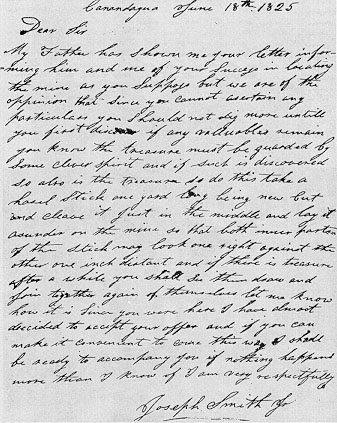 Canandagua June 18th 1825
Dear Sir
My Father has shown me your letter infor
ming him and me of your Success in locating
the mine as you Suppose but we are of the
oppinion that since you cannot asertain any
particulars you Should not dig more untill
you first discover if any valluables remain
you know the treasure must be guarded by
Some clever spirit and if such is discovered
so also is the treasure so do this take a
hasel Stick one yard long being new cut
and cleave it Just in the middle and lay it
asunder on the mine so that both inner parts
of the stick may look one right against the
other one inch distant and if there is treasure
after a while you shall See them draw and
Join together again of themselves let me know
how it is Since you were here I have almost
decided to accept your offer and if you can
make it convenient to come this way I shall
be ready to accompany you if nothing happens
more than I know of I am very respectfully
Joseph Smith Jr